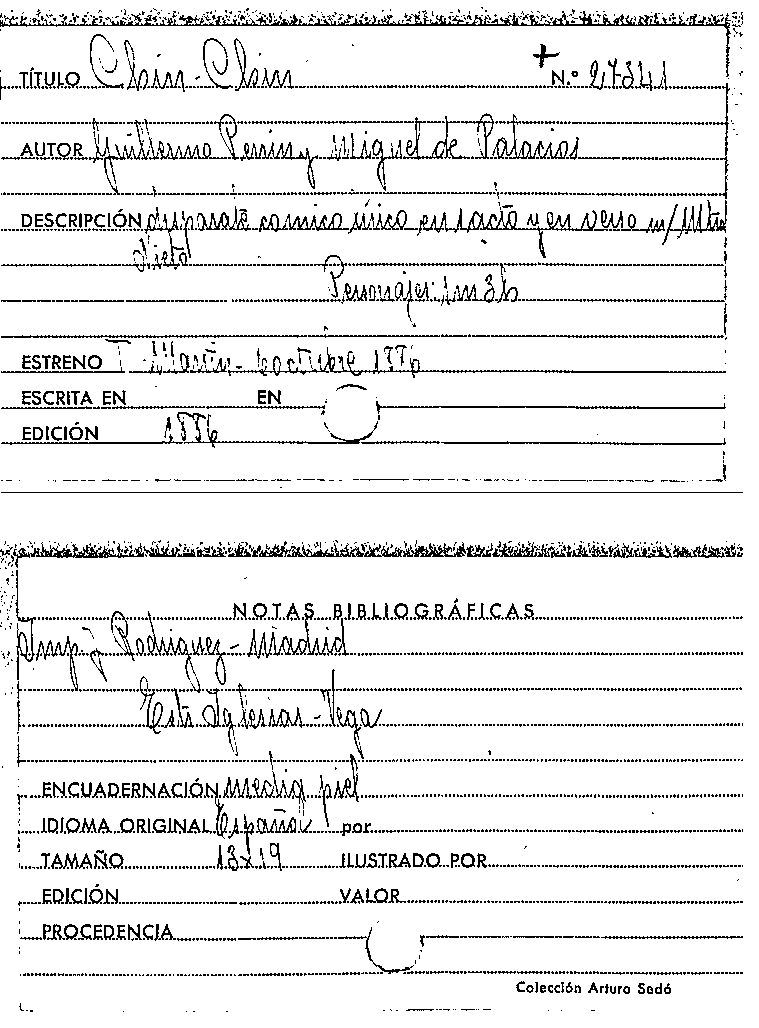 TÍTULO Chin-Chin N.º 27341
AUTOR Guillermo Perrin y Miguel de Palacios
DESCRIPCIÓN disparate comico único en 1 acto y en verso m/ Mtro
Nieto
Personajes: 1m 3h
ESTRENO T. Martin - 6 octubre 1886
ESCRITA EN EN
EDICIÓN 1886
NOTAS BIBLIOGRÁFICAS
Imp. J Rodriguez - Madrid
Iglesias - Vega
ENCUADERNACIÓN media piel
IDIOMA ORIGINAL Español por
TAMAÑO 13x19 ILUSTRADO POR
EDICIÓN VALOR
PROCEDENCIA
Colección Arturo Sedó